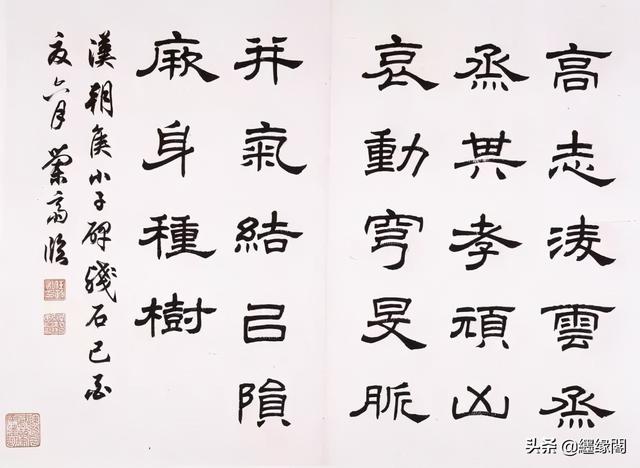 高志淩雲烝
烝其孝頑凶
哀動穹旻脈
并氣結㠯隕
厥身種樹
漢朝侯小子碑殘石己酉
夏六月 蘭齋臨
头条